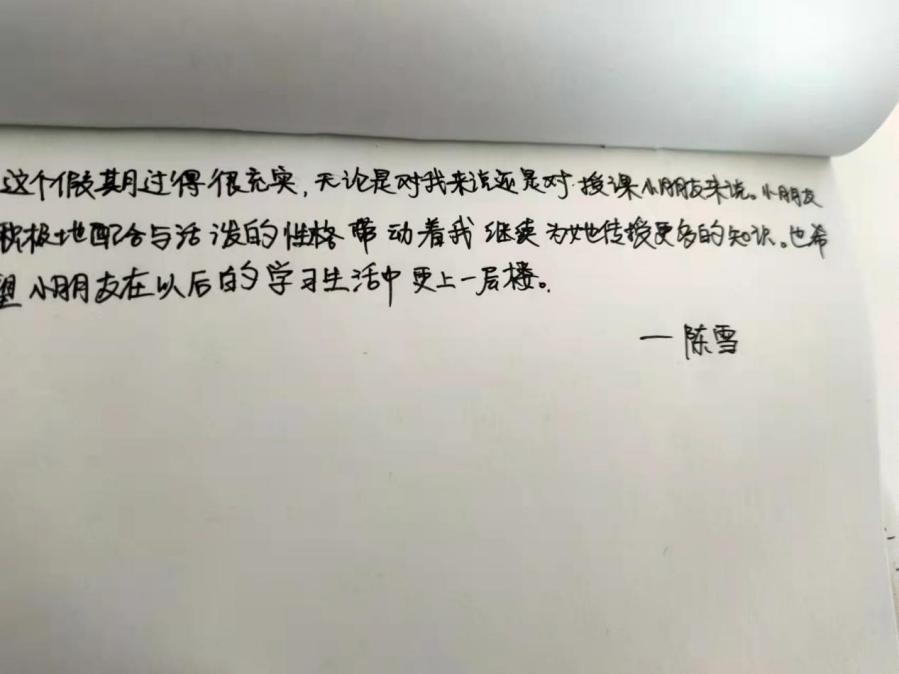 这个假期过得很充实,无论是对我来说还是对授课小朋友来说。小朋友
积极地配合与活泼的性格带动着我继续为她传授更多的知识。也希
望小朋友在以后的学习生活中更上一层楼。
—陈雪